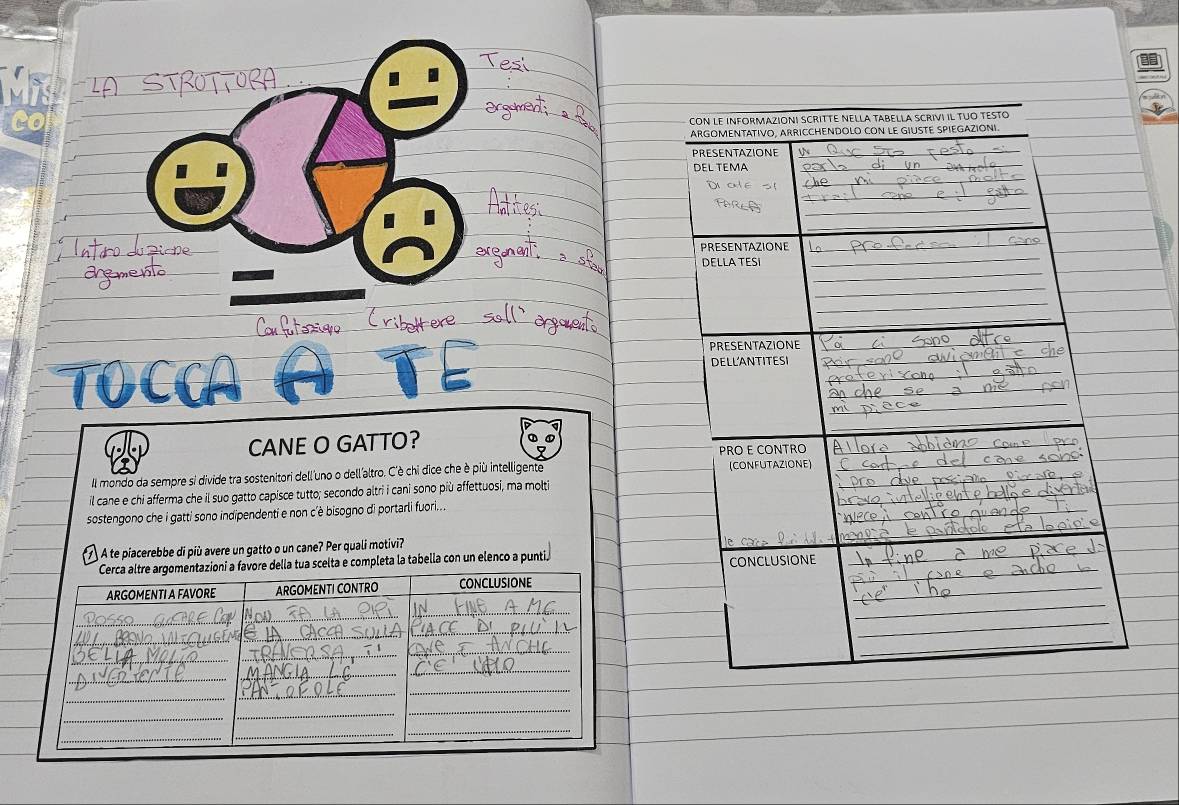 LA STRUTTURA
Tesi
argomenti a
Antitesi
argomenti a
Introduzione
argomento
Confutazione (ribattere sull' argomento
TOCCA A TE
CANE O GATTO?
Il mondo da sempre si divide tra sostenitori dell'uno o dell'altro. C'è chi dice che è più intelligente
il cane e chi afferma che il suo gatto capisce tutto; secondo altri i cani sono più affettuosi, ma molti
sostengono che i gatti sono indipendenti e non c'è bisogno di portarli fuori...
1 A te piacerebbe di più avere un gatto o un cane? Per quali motivi?
Cerca altre argomentazioni a favore della tua scelta e completa la tabella con un elenco a punti.
ARGOMENTI A FAVORE
POSSO GIOCARE CON
BRAVO INTELLIGENTE
BELLA MOLTO
DIVERTENTE
ARGOMENTI CONTRO
NON FA LA PIPI
E LA CACCA SULLA
TRAVERSA, TI
MANGIA LE
PANTOFOLE
CONCLUSIONE
IN FINE A ME
PIACE DI PIU' IL
CANE E ANCHE
C'E' L'HO
CON LE INFORMAZIONI SCRITTE NELLA TABELLA SCRIVI IL TUO TESTO
ARGOMENTATIVO, ARRICCHENDOLO CON LE GIUSTE SPIEGAZIONI.
PRESENTAZIONE
DEL TEMA
DI CHE SI
PARLA
testo si
parla di un
che mi piace molto
tra il cane e il gatto
PRESENTAZIONE
DELLA TESI
Io il cane
PRESENTAZIONE
DELL'ANTITESI
Poi ci sono altre
che
preferiscono il gatto
an che se a me non
mi piace
PRO E CONTRO
(CONFUTAZIONE)
Allora abbiamo come pro
e contro del cane sono:
i pro che possiamo giocare, e
bravo intelligente bello e divertente
invece i contro quando ti
mangia le pantofole e fa la pipi e
CONCLUSIONE
In fine a me piace di
più il cane e anche
c'e' l'ho